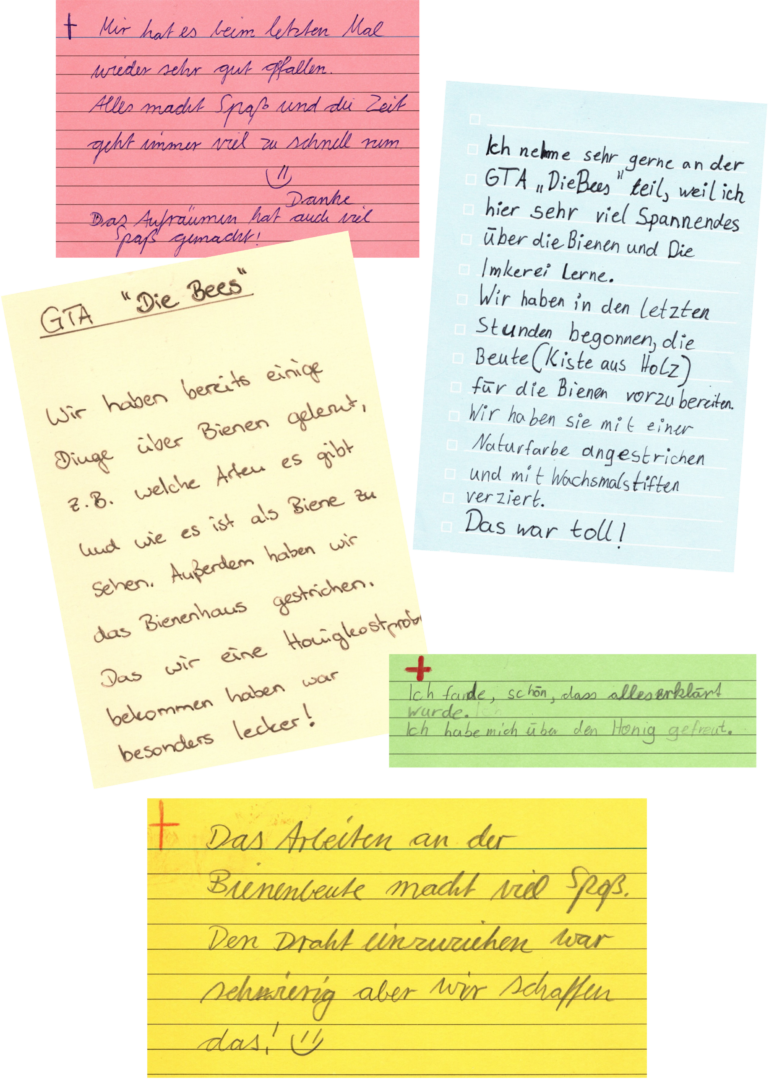 + Mir hat es beim letzten Mal
wieder sehr gut gfallen.
Alles macht Spaß und die Zeit
geht immer viel zu schnell rum
Danke
Das Aufräumen hat auch viel
Spaß gemacht!
Ich nehme sehr gerne an der
GTA „Die Bees" teil, weil ich
hier sehr viel Spannendes
über die Bienen und Die
Imkerei Lerne.
Wir haben in den letzten
Stunden begonnen, die
Beute (Kiste aus Holz)
für die Bienen vorzubereiten.
Wir haben sie mit einer
Naturfarbe angestrichen
und mit Wachsmalstiften
verziert.
Das war toll!
GTA "Die Bees"
Wir haben bereits einige
Dinge über Bienen gelernt,
z.B. welche Arten es gibt
und wie es ist als Biene zu
sehen. Außerdem haben wir
das Bienenhaus gestrichen.
Das wir eine Honigkostprobe
bekommen haben war
besonders lecker!
+
Ich fande, schön, dass alles erklärt
wurde.
Ich habe mich über den Honig gefreut.
+ Das Arbeiten an der
Bienenbeute macht viel Spaß.
Den Draht einzuziehen war
schwierig aber wir schaffen
das!